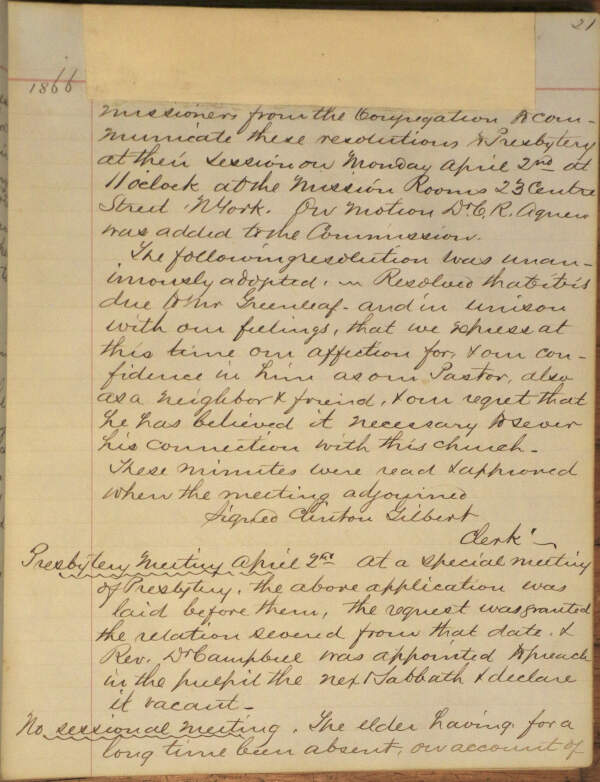 21
1866
missioners from the Congregation to com-
municate these resolutions to Presbytery
at their session on Monday April 2nd at
11 oclock at the Mission Rooms 23 Centre
Street N York. On motion Dr C. R. Agnew
was added to the Commission.
The following resolution was unan-
imously adopted. Resolved that it is
due to Mr Greenleaf - and in unison
with our feelings, that we express at
this time our affection for, & our con-
fidence in him as our Pastor, also
as a neighbor & friend, & our regret that
he has believed it necessary to sever
his connection with this church -
These minutes were read & approved
when the meeting adjourned
Signed Clinton Gilbert
Clerk
Presbytery Meeting April 2nd At a special meeting
of Presbytery, the above application was
laid before them, the request was granted
the relation severed from that date. &
Rev. Dr Campbell was appointed to preach
in the pulpit the next Sabbath & declare
it vacant -
No sessional meeting. The elder having for a
long time been absent, on account of